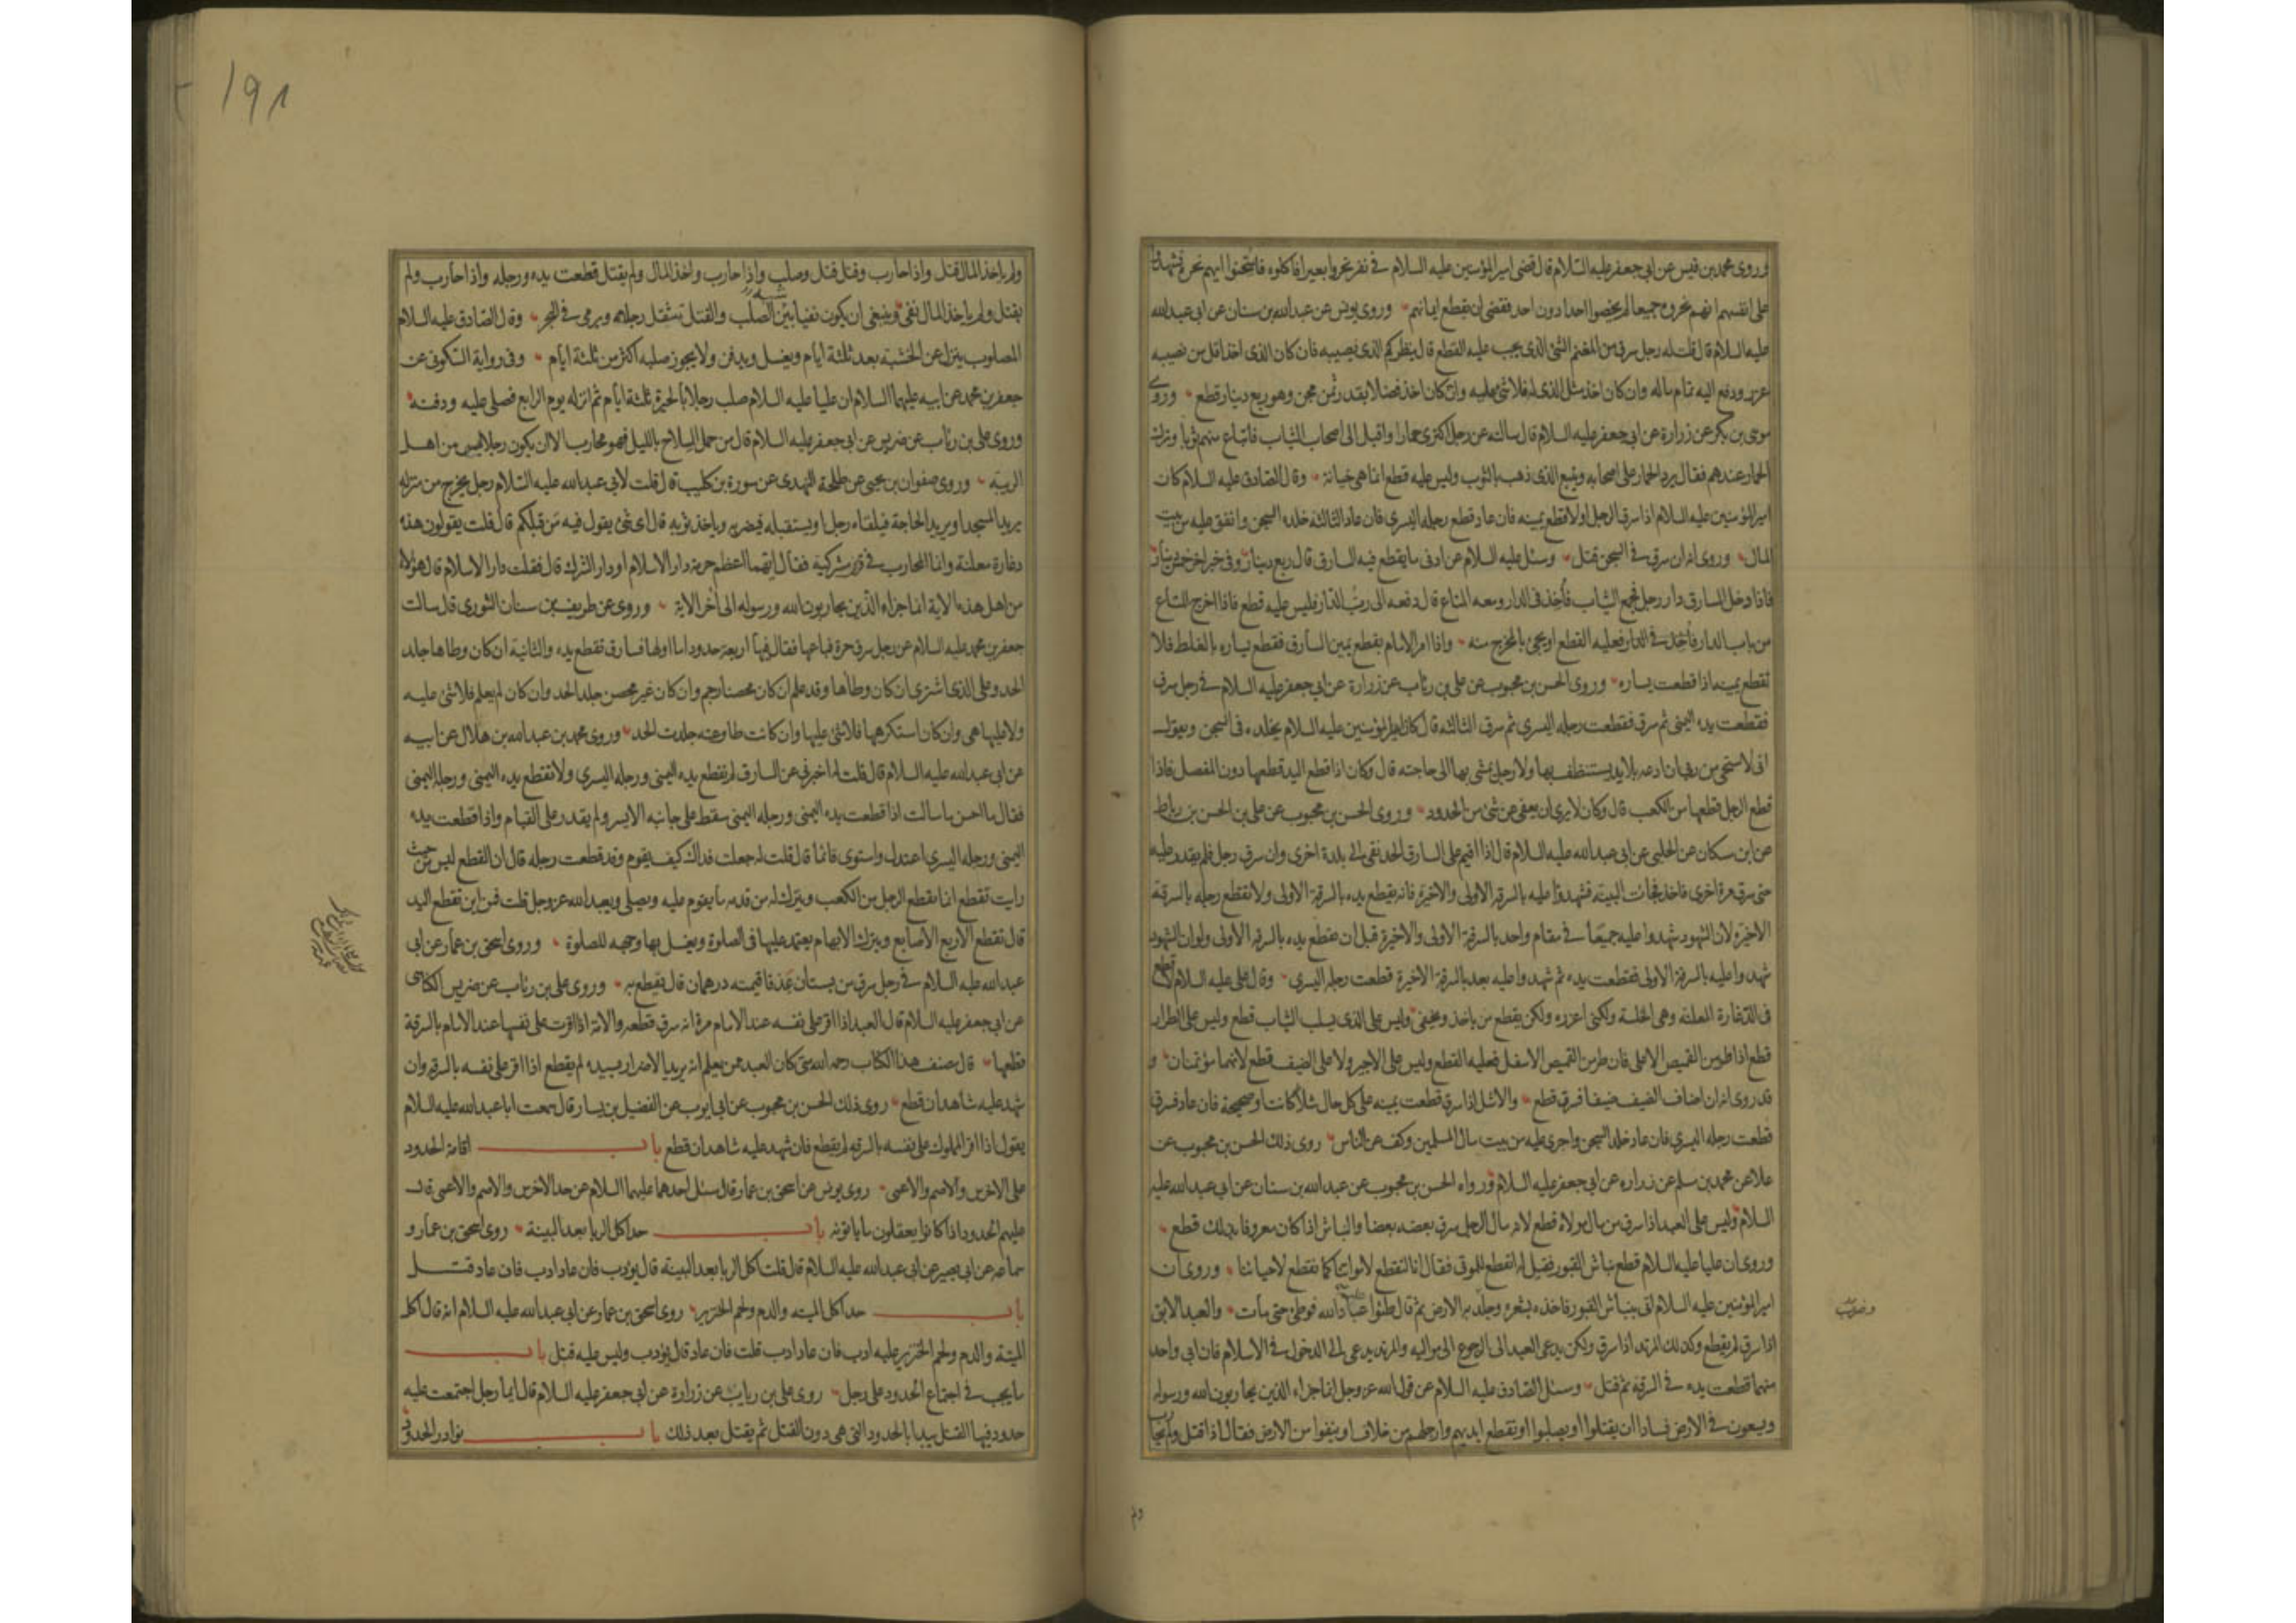 وروى محمد بن قيس عن ابى جعفر عليه السلام قال قضى امير المؤمنين عليه السلام فى نفر نحروا بعيرا فاكلوه فامتحنوا ايهم نحر فشهدوا
على انفسهم انهم نحروه جميعا لم يخصوا احدا دون احد فقضى ان تقطع ايمانهم وروى يونس عن عبدالله بن سنان عن ابى عبدالله
عليه السلام قال قلت له رجل سرق من المغنم الشئ الذى يجب عليه القطع قال ينظر كم الذى نصيبه فان كان الذى اخذ اقل من نصيبه
عزر ودفع اليه تمام ماله وان كان اخذ مثل الذى له فلا شئ عليه وان كان اخذ فضلا بقدر ثمن مجن وهو ربع دينار قطع وروى
موسى بن بكر عن زرارة عن ابى جعفر عليه السلام قال سالته عن رجل اكترى حمارا واقبل الى اصحاب الثياب فابتاع منهم ثوبا وترك
الحمار عندهم فقال يرد الحمار على اصحابه ويتبع الذى ذهب بالثوب وليس عليه قطع انما هى خيانة وقال الصادق عليه السلام كان
امير المؤمنين عليه السلام اذا سرق الرجل اولا قطع يمينه فان عاد قطع رجله اليسرى فان عاد الثالثة خلده السجن وانفق عليه من بيت
المال وروى انه ان سرق فى السجن قتل وسئل عليه السلام عن ادنى ما يقطع فيه السارق قال ربع دينار وفى خبر اخر خمس دينار
فاذا دخل السارق دار رجل فجمع الثياب فأخذ فى الدار ومعه المتاع قال دفعه الى رب الدار فليس عليه قطع فاذا اخرج المتاع
من باب الدار فأخذ فى الدار فعليه القطع او يجئ بالمخرج منه واذا امر الامام بقطع يمين السارق فقطع يساره بالغلط فلا
تقطع يمينه اذا قطعت يساره وروى الحسن بن محبوب عن على بن رئاب عن زرارة عن ابى جعفر عليه السلام فى رجل سرق
فقطعت يده اليمنى ثم سرق فقطعت رجله اليسرى ثم سرق الثالثة قال كان امير المؤمنين عليه السلام يخلده فى السجن ويقول
انى لاستحى من ربى ان ادعه بلا يد يستنظف بها ولا رجل يمشى بها الى حاجته قال وكان اذا قطع اليد قطعها دون المفصل فاذا
قطع الرجل قطعها من الكعب قال وكان لا يرى ان يعفى عن شئ من الحدود وروى الحسن بن محبوب عن على بن الحسن بن رباط
عن ابن مسكان عن الحلبى عن ابى عبدالله عليه السلام قال اذا اقيم على السارق الحد نفى الى بلدة اخرى وان سرق رجل فلم يقدر عليه
حتى سرق مرة اخرى فاخذ فجاءت البينة فشهدوا عليه بالسرقة الاولى والاخيرة فانه يقطع يده بالسرقة الاولى ولا تقطع رجله بالسرقة
الاخيرة لان الشهود شهدوا عليه جميعا فى مقام واحد بالسرقة الاولى والاخيرة قبل ان تقطع يده بالسرقة الاولى ولو ان الشهود
شهدوا عليه بالسرقة الاولى فقطعت يده ثم شهدوا عليه بعد بالسرقة الاخيرة قطعت رجله اليسرى وقال على عليه السلام لا قطع
فى الدغارة المعلنة وهى الخلسة ولكنى اعزره ولكن يقطع من ياخذ ويخفى وليس على الذى يسلب الثياب قطع وليس على الطرار
قطع اذا طر من القميص الاعلى فان طر من القميص الاسفل فعليه القطع وليس على الاجير ولا على الضيف قطع لانهما مؤتمنان و
قد روى انه ان اضاف الضيف ضيفا فسرق قطع والاشل اذا سرق قطعت يمينه على كل حال شلاء كانت او صحيحة فان عاد فسرق
قطعت رجله اليسرى فان عاد خلد السجن واجرى عليه من بيت مال المسلمين وكف عن الناس روى ذلك الحسن بن محبوب عن
علا عن محمد بن مسلم عن زراره عن ابى جعفر عليه السلام ورواه الحسن بن محبوب عن عبدالله بن سنان عن ابى عبدالله عليه
السلام وليس على العبد اذا سرق من مال مولاه قطع لانه مال الرجل سرق بعضه بعضا والنباش اذا كان معروفا بذلك قطع
وروى ان عليا عليه السلام قطع نباش القبور فقيل له اتقطع للموتى فقال انا لنقطع لامواتنا كما نقطع لاحيائنا وروى ان
امير المؤمنين عليه السلام اتى بنباش القبور فاخذه بشعره وجلد به الارض ثم قال طئوا عباد الله فوطئ حتى مات والعبد الابق
اذا سرق لم يقطع وكذلك المرتد اذا سرق ولكن يدعى العبد الى الرجوع الى مواليه والمرتد يدعى الى الدخول فى الاسلام فان ابى واحد
منهما قطعت يده فى السرقة ثم قتل وسئل الصادق عليه السلام عن قول الله عز وجل انما جزاء الذين يحاربون الله ورسوله
ويسعون فى الارض فسادا ان يقتلوا او يصلبوا او تقطع ايديهم وارجلهم من خلاف او ينفوا من الارض فقال اذا قتل ولم يحارب
ولم
١٩١
ولم ياخذ المال قتل واذا حارب وقتل قتل وصلب واذا حارب واخذ المال ولم يقتل قطعت يده ورجله واذا حارب ولم
يقتل ولم ياخذ المال نفى وينبغى ان يكون نفيا شبيه الصلب والقتل تثقل رجلاه ويرمى فى البحر وقال الصادق عليه السلام
المصلوب ينزل عن الخشبة بعد ثلثة ايام ويغسل ويدفن ولا يجوز صلبه اكثر من ثلثة ايام وفى رواية السكونى عن
جعفر بن محمد عن ابيه عليهما السلام ان عليا عليه السلام صلب رجلا بالحيرة ثلثة ايام ثم انزله يوم الرابع فصلى عليه ودفنه
وروى على بن رئاب عن ضريس عن ابى جعفر عليه السلام قال من حمل السلاح بالليل فهو محارب الا ان يكون رجلا ليس من اهل
الريبة وروى صفوان بن يحيى عن طلحة النهدى عن سورة بن كليب قال قلت لابى عبدالله عليه السلام رجل يخرج من منزله
يريد المسجد او يريد الحاجة فيلقاه رجل او يستقبله فيضربه وياخذ ثوبه قال اى شئ يقول فيه من قبلكم قال قلت يقولون هذه
دغارة معلنة وانما المحارب فى قرى مشركية فقال ايهما اعظم حرمة دار الاسلام او دار الشرك قال فقلت دار الاسلام قال هؤلاء
من اهل هذه الاية انما جزاء الذين يحاربون الله ورسوله الى آخر الاية وروى عن طريف بن سنان الثورى قال سالت
جعفر بن محمد عليه السلام عن رجل سرق حرة فباعها فقال فيها اربعة حدود اما اولها فسارق تقطع يده والثانية ان كان وطاها جلد
الحد وعلى الذى اشترى ان كان وطأها وقد علم ان كان محصنا رجم وان كان غير محصن جلد الحد وان كان لم يعلم فلا شئ عليه
ولا عليها هى وان كان استكرهها فلا شئ عليها وان كانت طاوعته جلدت الحد وروى محمد بن عبدالله بن هلال عن ابيه
عن ابى عبدالله عليه السلام قال قلت له اخبرنى عن السارق لم تقطع يده اليمنى ورجله اليسرى ولا تقطع يده اليمنى ورجله اليمنى
فقال ما احسن ما سالت اذا قطعت يده اليمنى ورجله اليمنى سقط على جانبه الايسر ولم يقدر على القيام واذا قطعت يده
اليمنى ورجله اليسرى اعتدل واستوى قائما قال قلت له جعلت فداك كيف يقوم وقد قطعت رجله قال ان القطع ليس من حيث
رايت تقطع انما يقطع الرجل من الكعب ويترك له من قدمه ما يقوم عليه ويصلى ويعبد الله عز وجل قلت فمن اين تقطع اليد
قال تقطع الاربع الاصابع ويترك الابهام يعتمد عليها فى الصلوة ويغسل بها وجهه للصلوة وروى اسحق بن عمار عن ابى
عبدالله عليه السلام فى رجل سرق من بستان عذقا قيمته درهمان قال يقطع به وروى على بن رئاب عن ضريس الكناسى
عن ابى جعفر عليه السلام قال العبد اذا اقر على نفسه عند الامام مرة انه سرق قطعه والامة اذا اقرت على نفسها عند الامام بالسرقة
قطعها قال مصنف هذا الكتاب رحمه الله متى كان العبد ممن يعلم انه يريد الاضرار بسيده لم يقطع اذا اقر على نفسه بالسرقة وان
شهد عليه شاهدان قطع روى ذلك الحسن بن محبوب عن ابى ايوب عن الفضيل بن يسار قال سمعت ابا عبدالله عليه السلام
يقول اذا اقر المملوك على نفسه بالسرقة لم يقطع فان شهد عليه شاهدان قطع باب اقامة الحدود
على الاخرس والاصم والاعمى روى يونس عن اسحق بن عمار قال سئل احدهما عليهما السلام عن حد الاخرس والاصم والاعمى قال
عليهم الحدود اذا كانوا يعقلون ما ياتونه باب حد اكل الربا بعد البينة روى اسحق بن عمار و
سماعه عن ابى بصير عن ابى عبدالله عليه السلام قال قلت اكل الربا بعد البينة قال يؤدب فان عاد ادب فان عاد قتل
باب حد اكل الميتة والدم ولحم الخنزير روى اسحق بن عمار عن ابى عبدالله عليه السلام انه قال اكل
الميتة والدم ولحم الخنزير عليه ادب فان عاد ادب قلت فان عاد قال يؤدب وليس عليه قتل باب
ما يجب فى اجتماع الحدود على رجل روى على بن رياب عن زرارة عن ابى جعفر عليه السلام قال ايما رجل اجتمعت عليه
حدود فيها القتل يبدا بالحدود التى هى دون القتل ثم يقتل بعد ذلك باب نوادر الحدود